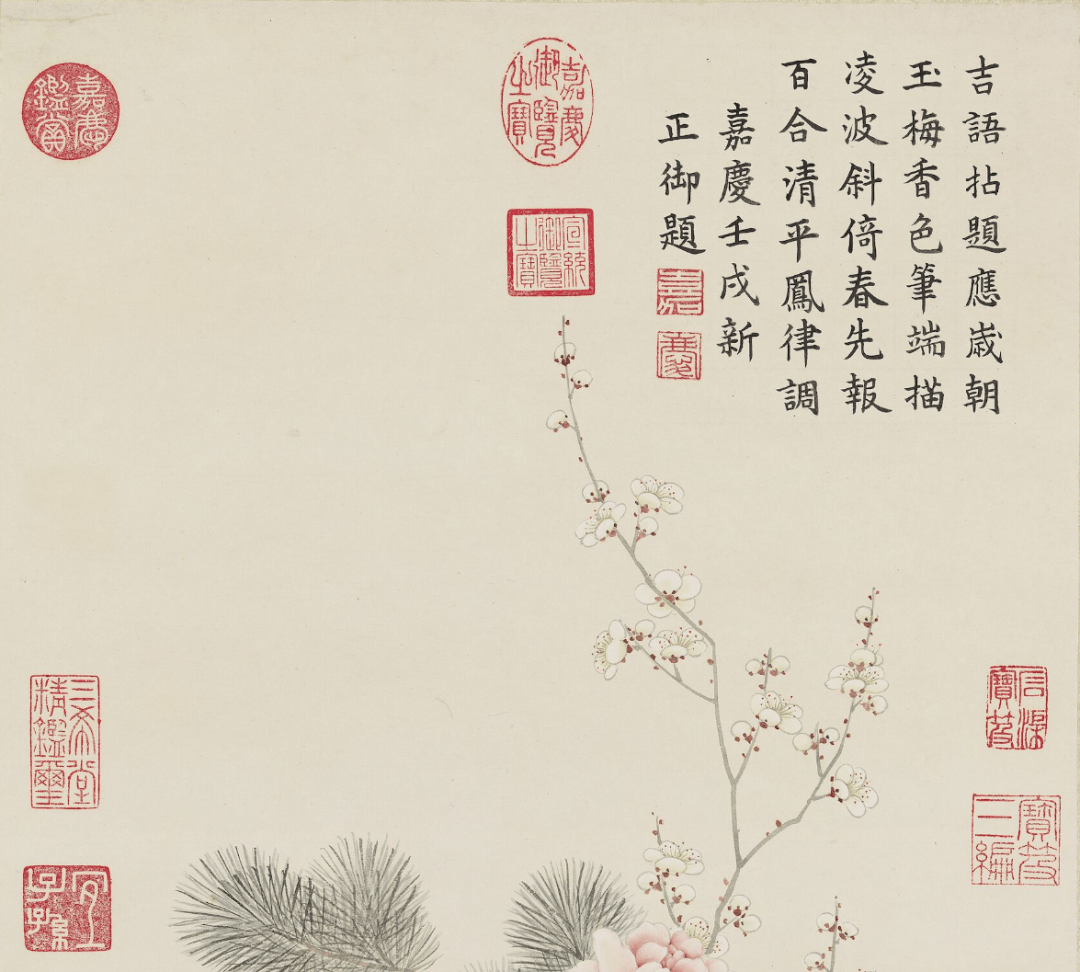 吉語拈題應歲朝
玉梅香色筆端描
凌波斜倚春先報
百合清平鳳律調
嘉慶壬戌新
正御題
嘉
慶
嘉慶
御覽
之寶
宣統
御覽
之寶
嘉慶
鑑賞
三希堂
精鑑璽
宜
子孫
石渠
寶笈
寶笈
三編